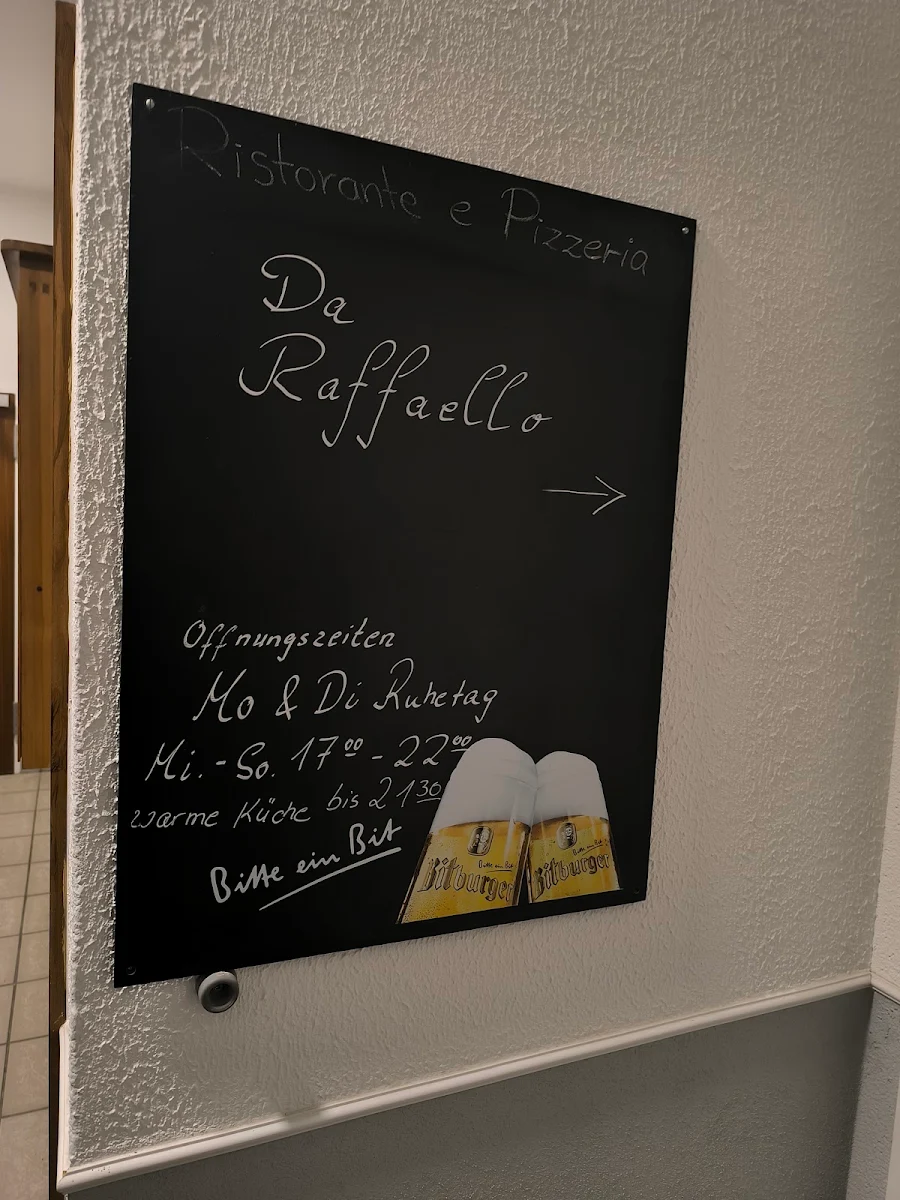 Ristorante e Pizzeria
Da
Raffaello
→
Öffnungszeiten
Mo & Di Ruhetag
Mi.-So. 17⁰⁰ - 22⁰⁰
warme Küche bis 21³⁰
Bitte ein Bit
Bitte ein Bit
Bitburger
Bitte ein Bit
Bitburger